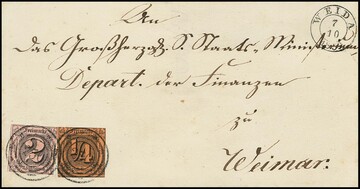 WEIDA
7
10
An
das Großherzogl. S. Staats-Ministerium,
Depart. der Finanzen
zu
Weimar.
2
1/4